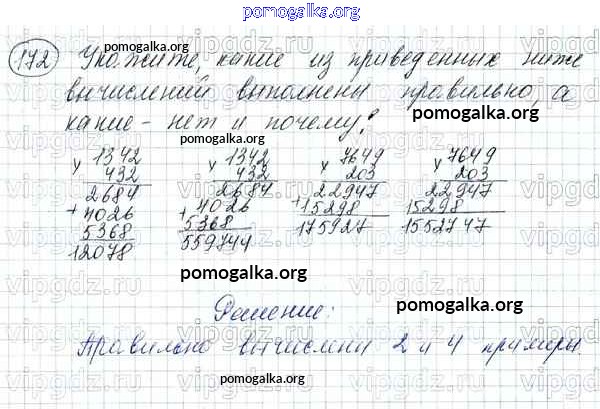 pomogalka.org
172 Укажите, какие из приведенных ниже
pomogalka.org
вычислений выполнены правильно, а
какие - нет и почему?
pomogalka.org
pomogalka.org
x 1342 x 1342 x 7649 x 7649
432 432 203 203
2684 2684 22947 22947
+ 4026 + 4026 + 15298 15298
5368 5368 175927 1552747
12078 559744
pomogalka.org
pomogalka.org
Решение:
pomogalka.org
Правильно вычислени 2 и 4 примеры.
pomogalka.org
vipgdz.ru